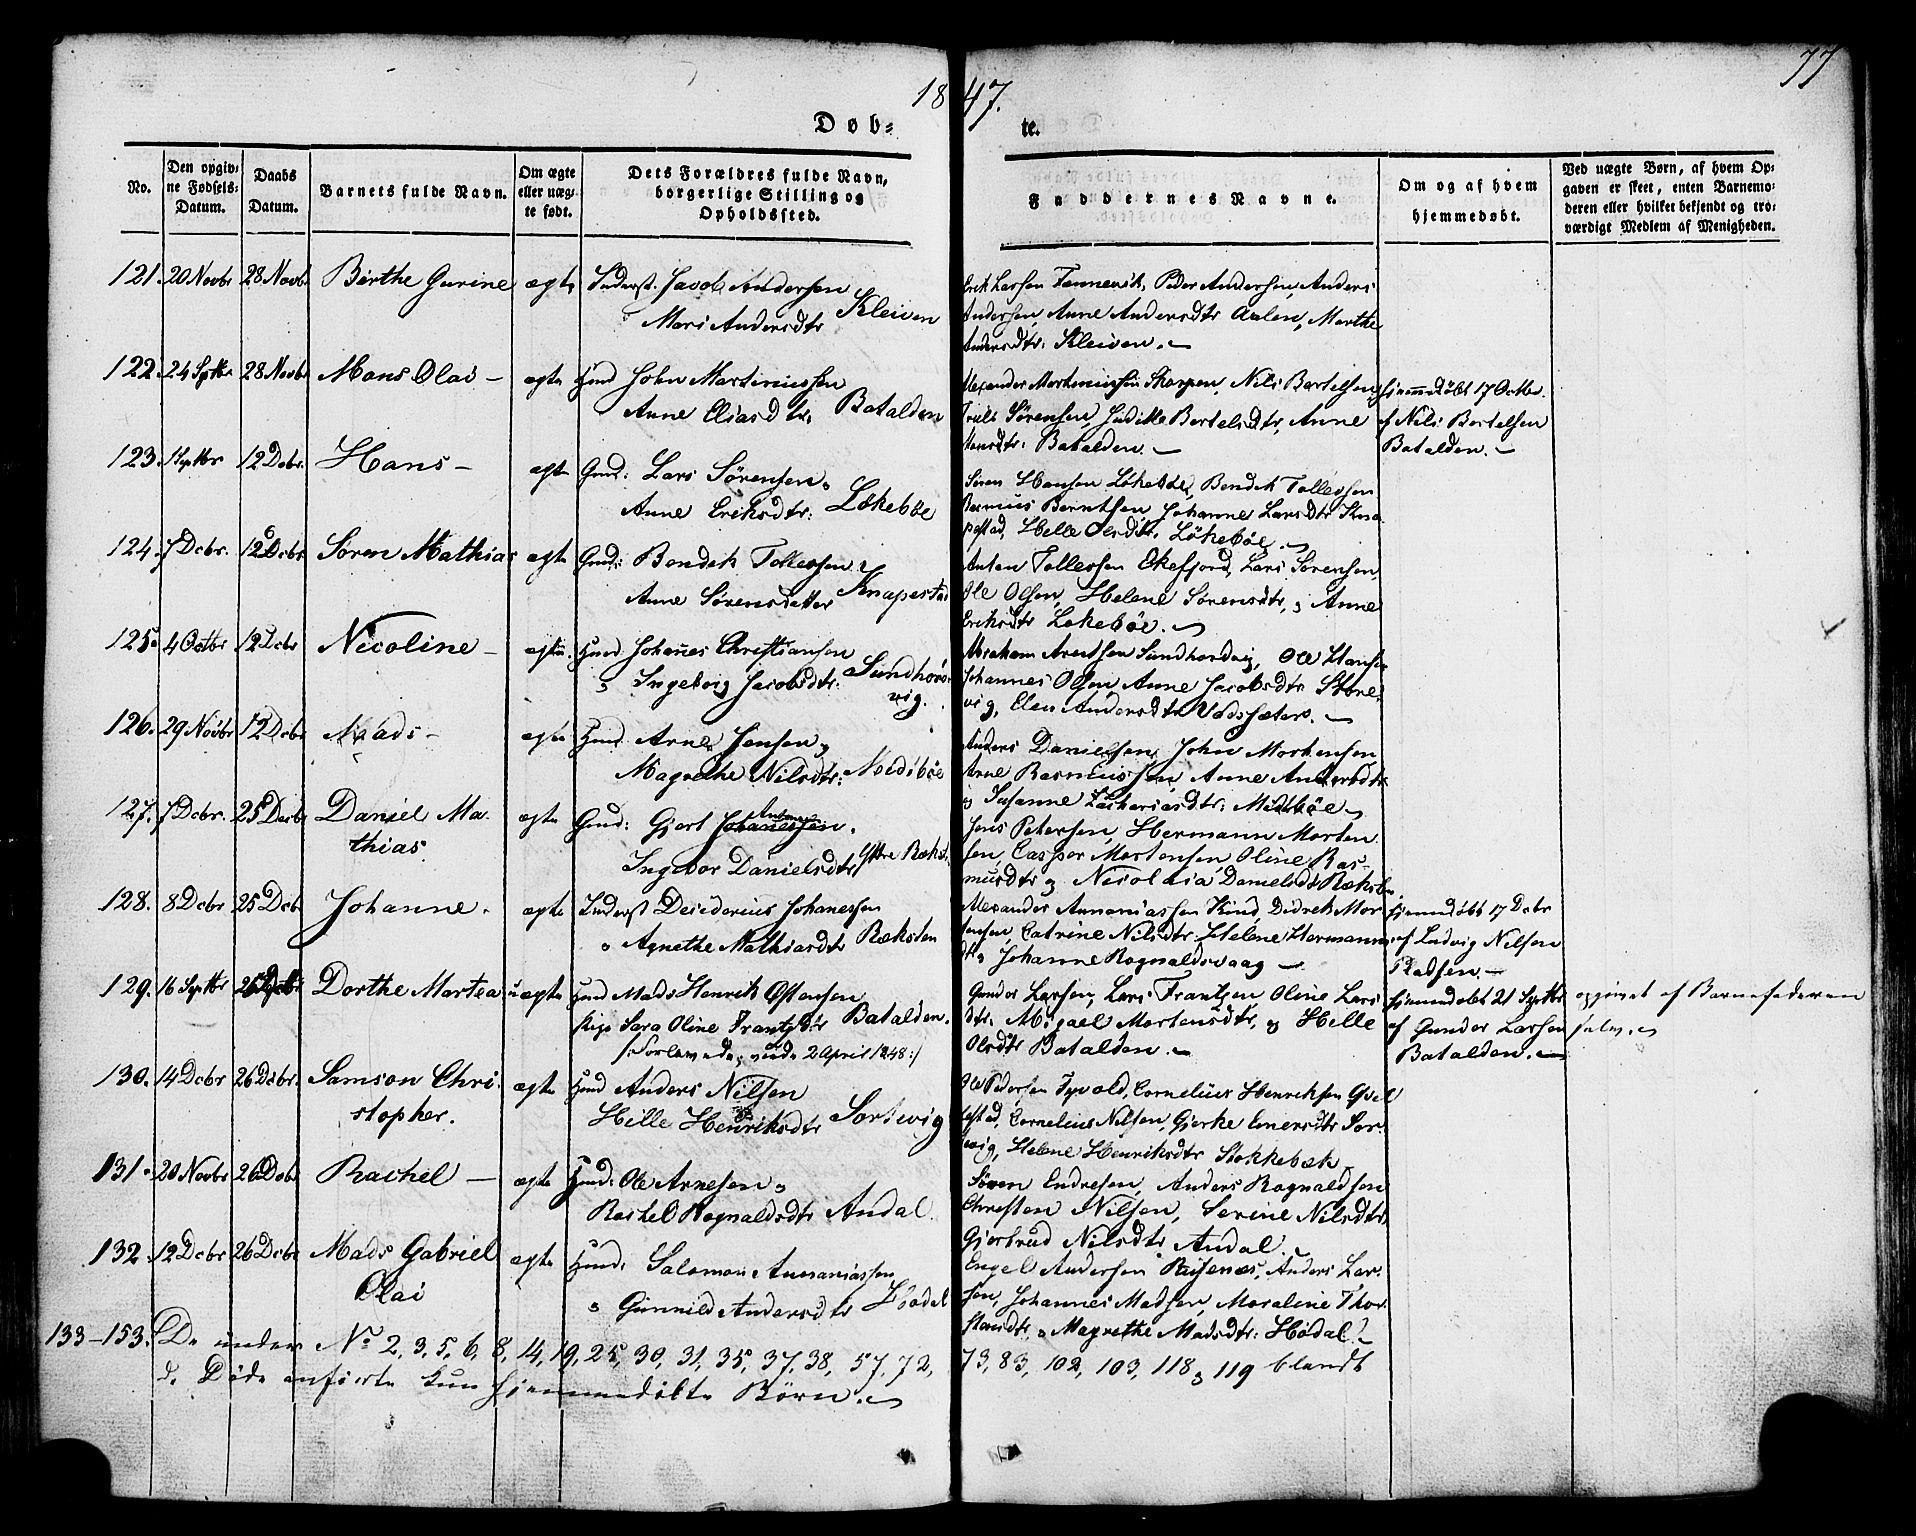 77
18 47.
Døb- te.
No.
Den opgiv-
ne Fødsels-
Datum.
Daabs
Datum.
Barnets fulde Navn.
Om ægte
eller uæg-
te født.
Dets Forældres fulde Navn,
borgerlige Stilling og
Opholdssted.
Faddernes Navne.
Om og af hvem
hjemmedøbt.
Ved uægte Børn, af hvem Op-
gaven er skeet, enten Barnemo-
deren eller hvilket bekjendt og tro-
værdigt Medlem af Menigheden.
121. 20 Novbr 28 Novbr Birthe Gurine ægte Inderst: Jacob Andersen
Mari Andersdtr Kleiven
Erik Larsen Fennevik, Peder Andersen, Anders
Andersen, Anne Andersdtr Aalen, Marthe
Andersdtr: Kleiven.
122. 24 Septbr 28 Novbr Mons Olai - ægte Huusd John Martinussen
Anne Eliasdtr. Batalden
Alexander Mortenussen Skorpen, Nils Bertelsen
Truls Sørensen, Judithe Bertelsdtr, Anne
Monsdtr: Batalden.
hjemmedøbt 17 Octbr.
af Nils Bertelsen
Batalden.
123. 1 Septbr 12 Decbr. Hans - ægte Gmd: Lars Sørensen
Anne Eriksdtr: Løkebøe
Søren Hansen Løkebøe, Bendik Tollefsen
Rasmus Berntsen, Johanne Larsdtr Kna-
pestad, Helle Olsdtr. Løkebøe.
124. 7 Dcbr. 12 Dcbr Søren Mathias ægte Gmd: Bendik Tollefsen
Anne Sørensdatter Knapestad
Anten Tollefsen Ekefjord, Lars Sørensen,
Ole Olsen, Helene Sørensdtr, og Anne
Eriksdtr Løkebøe.
125. 4 Octbr 12 Dcbr Nicoline - ægte. Huusd Johanes Christiansen
Ingeborg Jacobsdtr: Sundhord-
vig.
Abraham Arentsen Sundhordvig, Ole Hansen
Johannes Olsen Anne Jacobsdtr Store-
vig, Elen Andersdtr Vadsæter.
126. 29 Novbr 12 Dcbr Mads - ægte Huusd: Arne Jensen,
Magrethe Nilsdtr: Midtbøe
Anders Danielsen, John Mortensen,
Arne Rasmussen, Anne Andersdtr
og Susanne Zachariasdtr: Midtbøe
127. 7 Dcbr. 25 Decbr Daniel Ma-
thias. ægte Gmd: Gjert Johanessen.
Ingebor Danielsdtr Yttre Rækst.
Jens Petersen, Hermann Morten-
sen, Casper Mortensen, Oline Ras-
musdtr og Nicolaia Danielsdtr Ræksten
128. 8 Dcbr 25 Dcbr Johanne. ægte Inderst Desiderius Johanessen
Agnethe Mathiasdtr Ræksten
Alexander Annaniassen Kind, Didrek Mor-
tensen, Catrine Nilsdtr: Helene Hermanns-
dtr Johanne Rognaldsvaag -
hjemmedøbt 17 Dcbr
af Ludvig Nilsen
129. 16 Septbr 26 Decbr Dorthe Martea uægte Huusd Mads Henrik Østensen
Pige Sara Oline Frantzdtr Batalden.
/:Forlovede, viede 2 April 1848:/
Gunder Larsen, Lars Frantzen, Oline Lars-
dtr. Migael Mortensdtr, og Helle
Olsdtr Batalden.
hjemmedøbt 21 Septbr
af Gunder Larsen
Batalden.
opgivet af Barnefaderen
selv.
130. 14 Dcbr 26 Dcbr. Samson Chri-
stopher. ægte Huusd Anders Nilsen
Helle Henriksdtr Sortevig
Ole Pedersen Tyvold, Cornelius Henriksen Gjel-
lestad, Cornelius Nilsen, Gjerke Emersdtr Sor-
tevig, Helene Henriksdtr Stokkebæk
131. 20 Novbr 26 Dcbr Rachel - ægte Huusd: Ole Arnesen
Rachel Rognaldsdtr Andal.
Søren Endresen, Anders Rognaldsen
Christen Nilsen, Serine Nilsdtr,
Gjertrud Nilsdtr Andal.
132. 12 Dcbr 26 Dcbr Mads Gabriel
Olai ægte Huusd: Salomon Annaniassen
Gunnild Andersdtr Hødal
Engel Andersen Reisenæs, Anders Lar-
sen, Johannes Madsen, Maraline Thor-
stensdtr, Magrethe Madsdtr: Hødal.
133-153. De under No 2, 3, 5, 6, 8, 14, 19, 25, 30, 31, 35, 37, 38, 57, 72, 73, 83, 102, 103, 118 og 119 blandt
d. Døde anførte kun hjemmedøbte Børn.